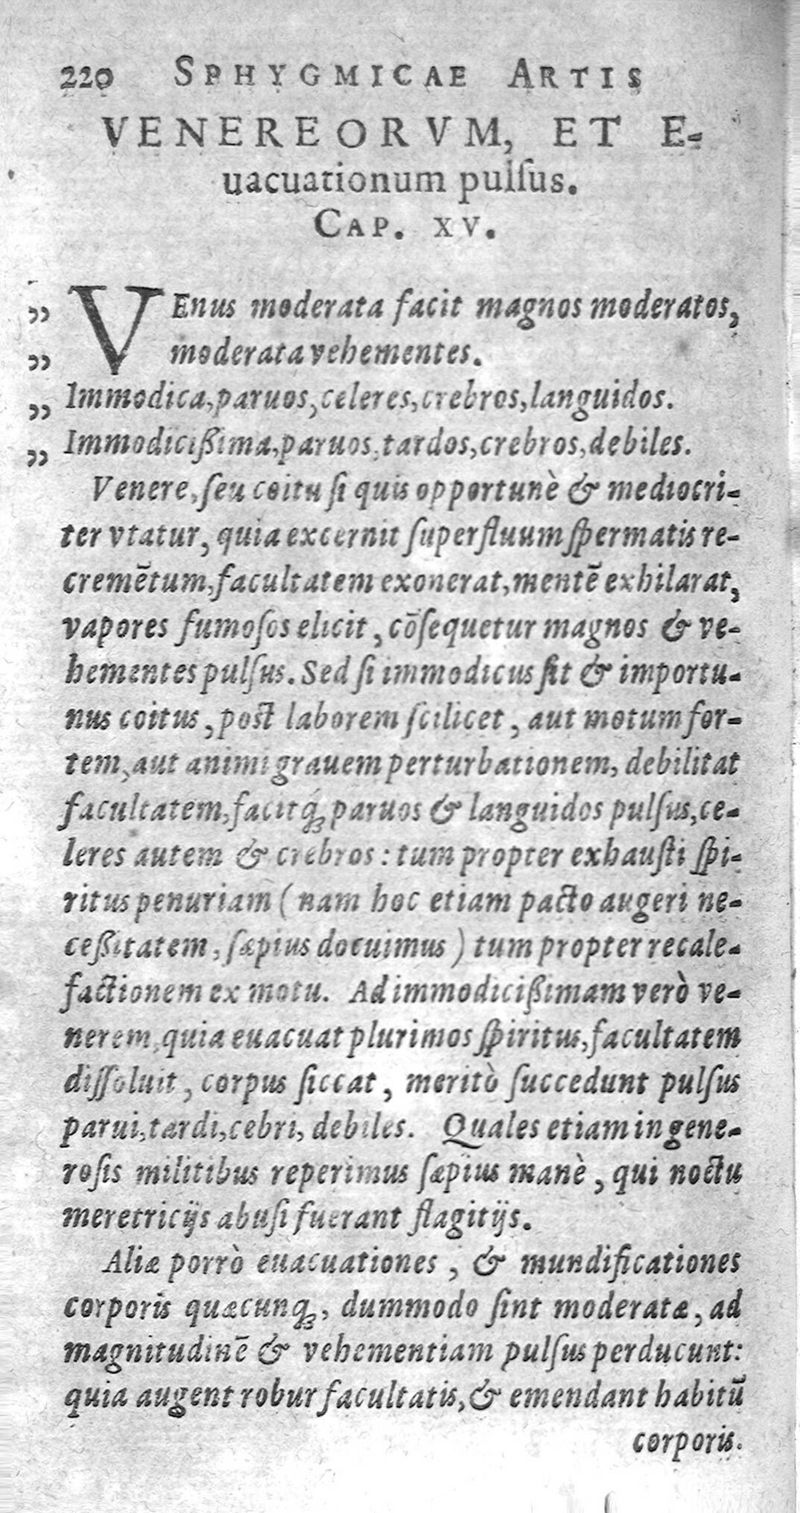 220 SPHYGMICAE ARTIS
VENEREORVM, ET E-
uacuationum pulſus.
CAP. XV.
„ VEnus moderata facit magnos moderatos,
„ moderata vehementes.
„ Immodica, paruos, celeres, crebros, languidos.
„ Immodicißima, paruos, tardos, crebros, debiles.
Venere, ſeu coitu ſi quis opportunè & mediocri-
ter vtatur, quia excernit ſuperfluum ſpermatis re-
cremētum, facultatem exonerat, mentē exhilarat,
vapores fumoſos elicit, cōſequetur magnos & ve-
hementes pulſus. Sed ſi immodicus ſit & importu-
nus coitus, poſt laborem ſcilicet, aut motum for-
tem, aut animi grauem perturbationem, debilitat
facultatem, facitq́; paruos & languidos pulſus, ce-
leres autem & crebros: tum propter exhauſti ſpi-
ritus penuriam (nam hoc etiam pacto augeri ne-
ceßitatem, ſæpius docuimus) tum propter recale-
factionem ex motu. Ad immodicißimam verò ve-
nerem, quia euacuat plurimos ſpiritus, facultatem
diſſoluit, corpus ſiccat, meritò ſuccedunt pulſus
parui, tardi, cebri, debiles. Quales etiam in gene-
roſis militibus reperimus ſæpius manè, qui noctu
meretricijs abuſi fuerant flagitijs.
Aliæ porrò euacuationes, & mundificationes
corporis quæcunq́;, dummodo ſint moderatæ, ad
magnitudinē & vehementiam pulſus perducunt:
quia augent robur facultatis, & emendant habitū
corporis.